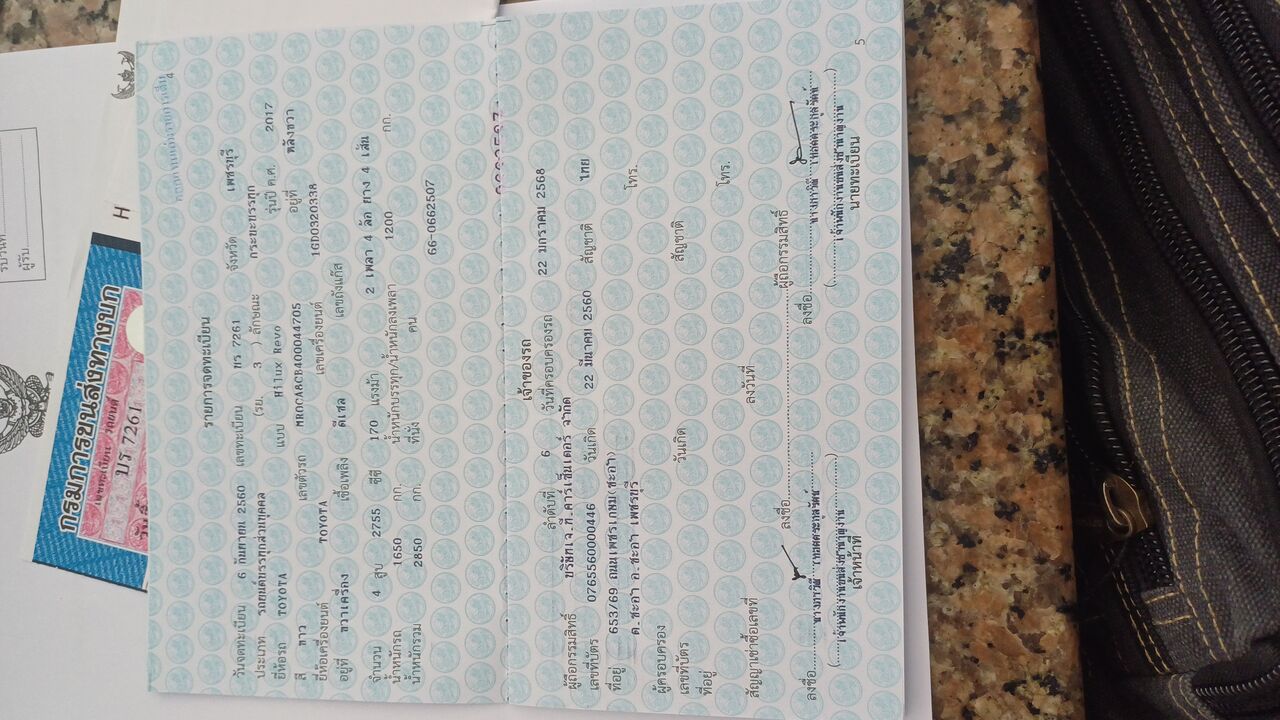 4
รายการจดทะเบียน
วันจดทะเบียน 6 กันยายน 2560 เลขทะเบียน บร 7261 จังหวัด เพชรบุรี
ประเภท รถยนต์บรรทุกส่วนบุคคล (รย. 3 ) ลักษณะ กระบะบรรทุก
ยี่ห้อรถ TOYOTA แบบ Hilux Revo รุ่นปี ค.ศ. 2017
สี ขาว เลขตัวรถ MR0CA8CB400044705 อยู่ที่ หลังขวา
ยี่ห้อเครื่องยนต์ TOYOTA เลขเครื่องยนต์ 1GD0320338
อยู่ที่ ขวาเครื่อง เชื้อเพลิง ดีเซล เลขถังแก๊ส
จำนวน 4 สูบ 2755 ซีซี 170 แรงม้า 2 เพลา 4 ล้อ ยาง 4 เส้น
น้ำหนักรถ 1650 กก. น้ำหนักบรรทุก/น้ำหนักลงเพลา 1200 กก.
น้ำหนักรวม 2850 กก. ที่นั่ง คน 66-0662507
เจ้าของรถ
ลำดับที่ 6 วันที่ครอบครองรถ 22 มกราคม 2568
ผู้ถือกรรมสิทธิ์ บริษัทเจ.ที.คาร์เซ็นเตอร์ จำกัด
เลขที่บัตร 0765560000446 วันเกิด 22 มีนาคม 2560 สัญชาติ ไทย
ที่อยู่ 653/69 ถนนเพชรเกษม(ชะอำ) โทร.
ต.ชะอำ อ.ชะอำ เพชรบุรี
ผู้ครอบครอง
เลขที่บัตร วันเกิด สัญชาติ
ที่อยู่ โทร.
สัญญาเช่าซื้อเลขที่ ลงวันที่
ลงชื่อ ผู้ถือกรรมสิทธิ์
ลงชื่อ ลงชื่อ
(เจ้าพนักงานขนส่งชำนาญงาน) (เจ้าพนักงานขนส่งชำนาญงาน)
เจ้าหน้าที่ นายทะเบียน
5
กรมการขนส่งทางบก
เลขทะเบียน รถยนต์
บร 7261
H
ผู้รับ